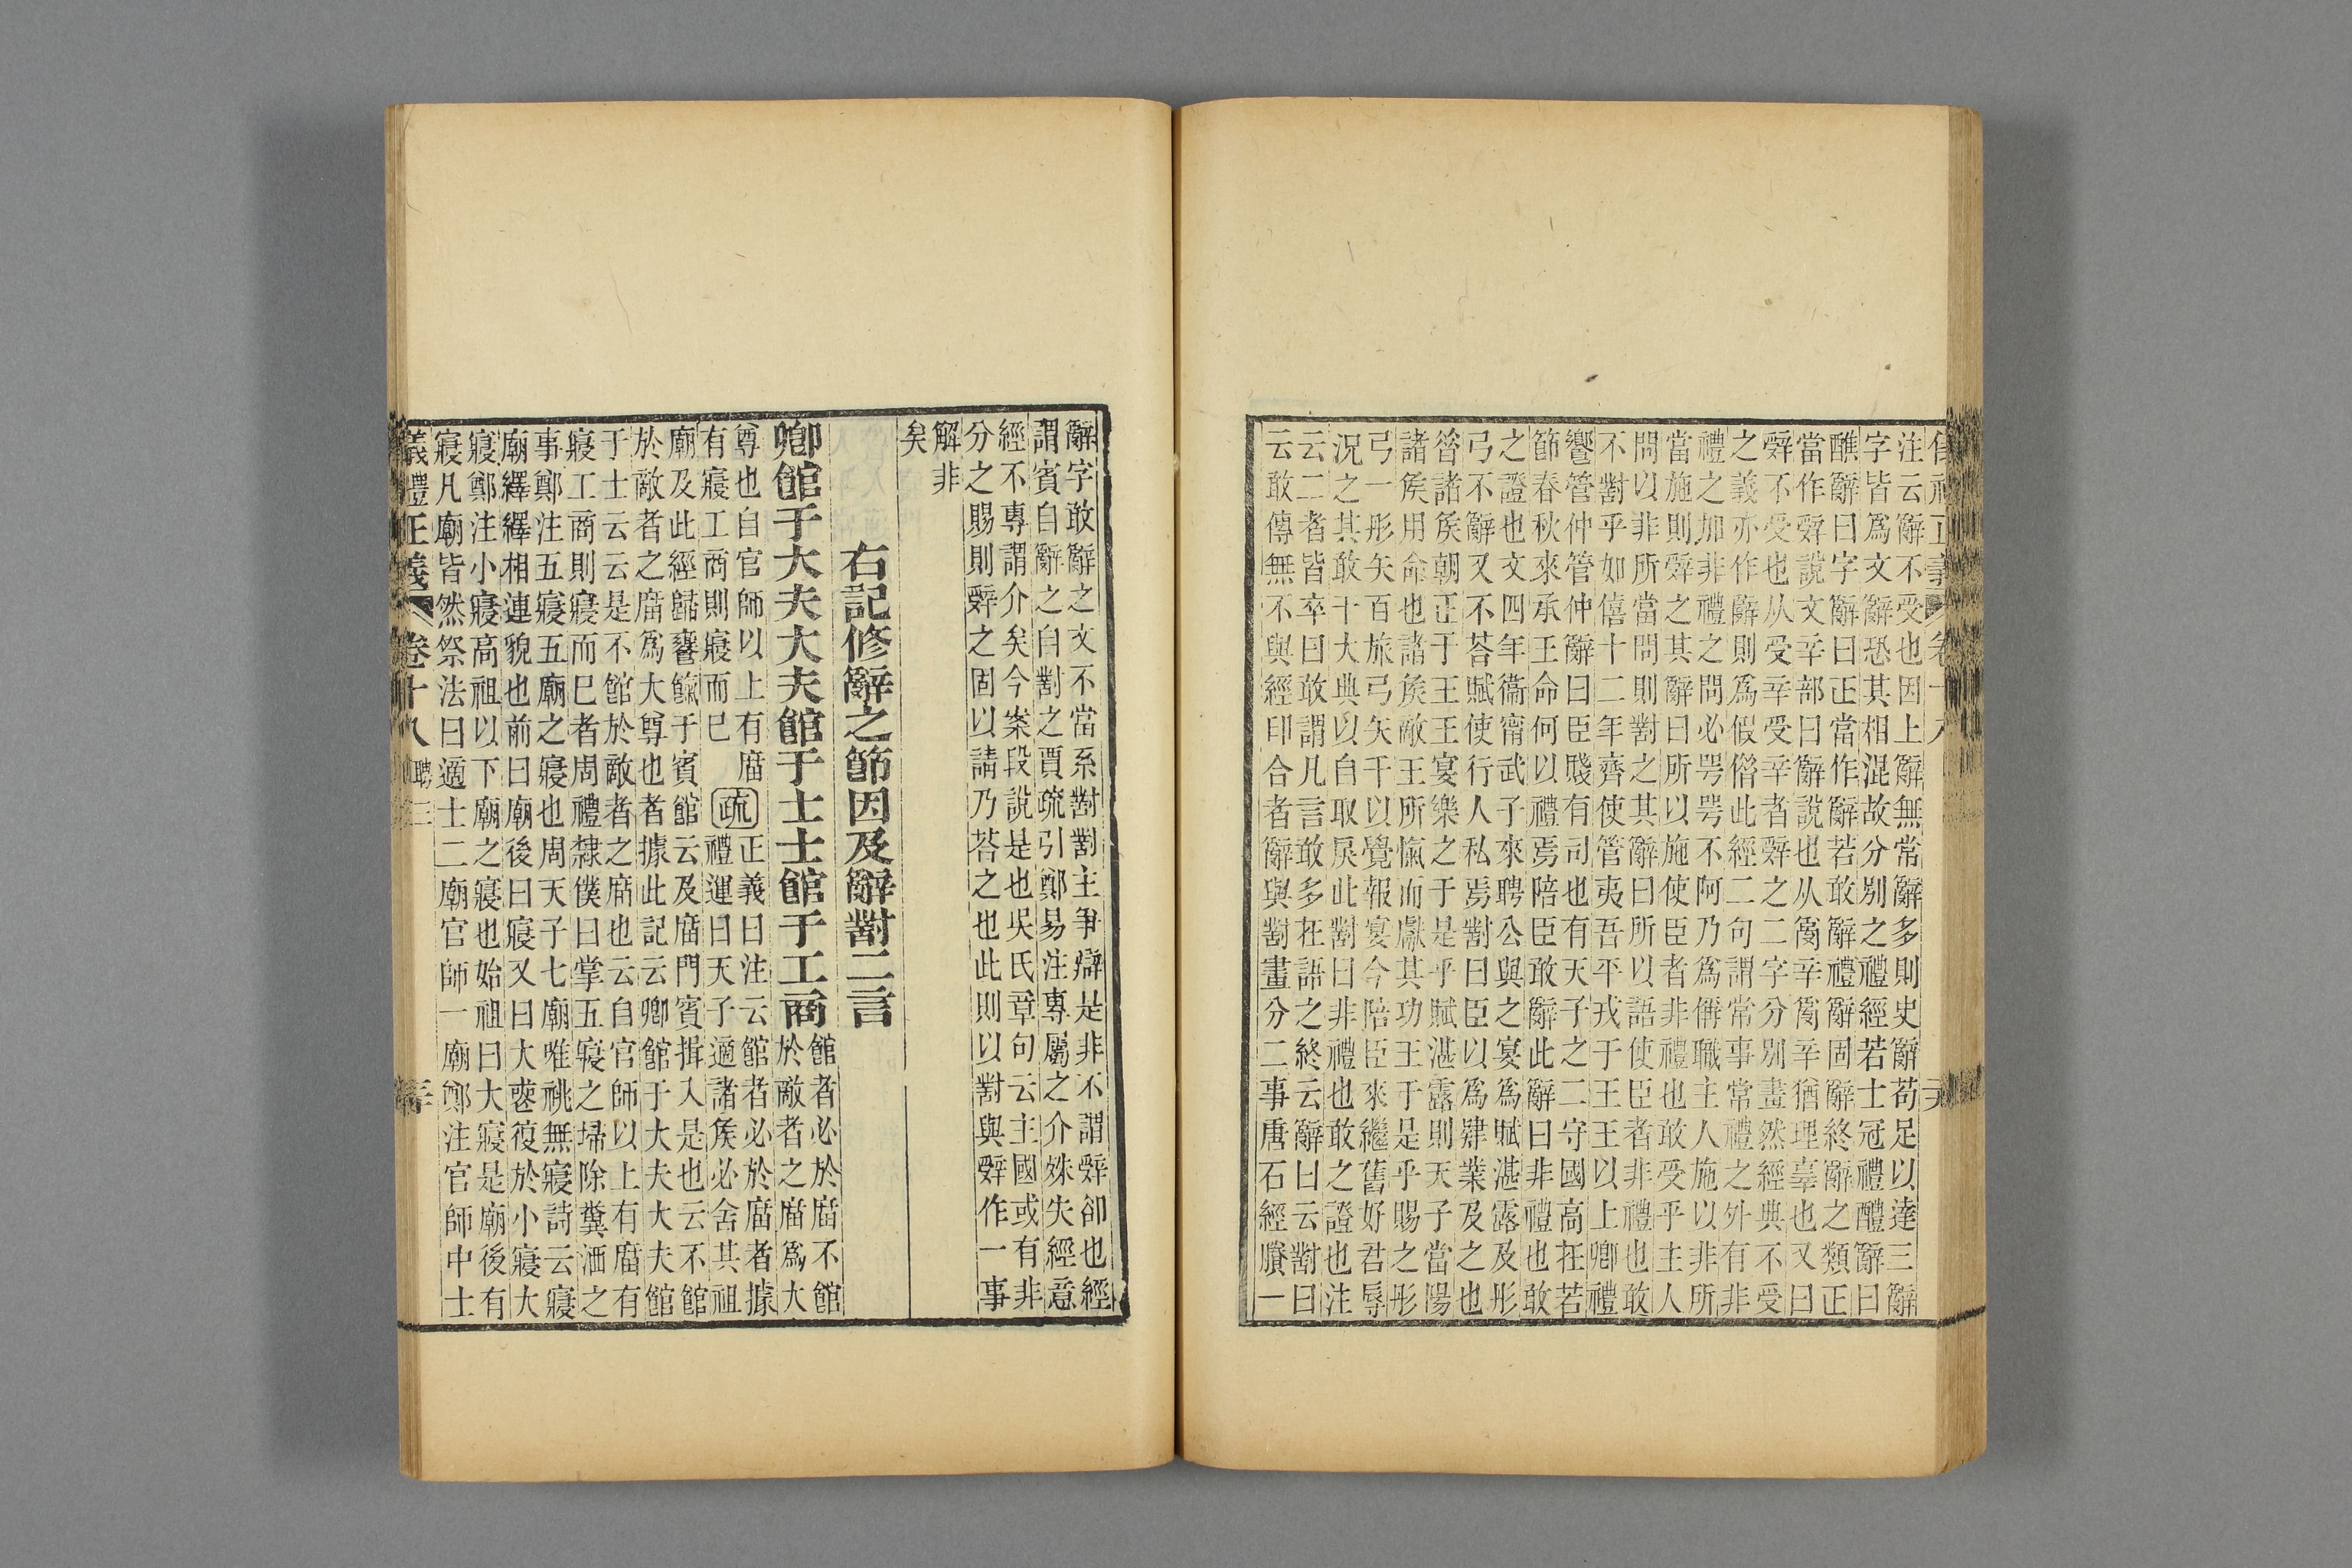 注云辭不受也因上辭無常辭多則史辭苟足以達三辭
字皆爲文辭恐其相混故分別之禮經若士冠禮醴辭曰
醮辭曰字辭曰正當作辭若敢辭禮辭固辭終辭之類正
當作辤說文辛部曰辭說也从𤔲辛𤔲辛猶理辜也又曰
辤不受也从受辛受辛者辤之二字分別畫然經典不受
之義亦作辭則爲假偕此經二句謂常事常禮之外有非
禮之加非禮之問必咢咢不阿乃爲偁職主人施以非所
當施則辤之其辭曰所以施使臣者非禮也敢受乎主人
問以非所當問則對之其辭曰所以語使臣者非禮也敢
不對乎如僖十二年齊使管夷吾平戎于王王以上卿禮
饗管仲管仲辭曰臣賤有司也有天子之二守國高在若
節春秋來承王命何以禮焉陪臣敢辭此辭曰非禮也敢
之證也文四年衞甯武子來聘公與之宴爲賦湛露及彤
弓不辭又不荅賦使行人私焉對曰臣以爲肄業及之也
昝諸矦朝正于王王宴樂之于是乎賦湛露則天子當陽
諸矦用命也諸矦敵王所愾而獻其功王于是乎賜之彤
弓一彤矢百旅弓矢千以覺報宴今陪臣來繼舊好君辱
況之其敢十大典以自取戾此對曰非禮也敢之證也注
云二者皆卒曰敢謂凡言敢多在語之終云辭曰云對曰
云敢傳無不與經印合者辭與對畫分二事唐石經賸一
辭字敢辭之文不當系對對主爭辯是非不謂辤卻也經
謂賓自辭之自對之賈疏引鄭易注專屬之介姝失經意
經不專謂介矣今案段說是也吳氏章句云主國或有非
分之賜則辤之固以請乃荅之也此則以對與辤作一事
解非
矣
右記修辭之節因及辭對二言
卿館于大夫大夫館于士士館于工商
館者必於廟不館
於敵者之廟爲大
尊也自官師以上有廟
有寢工商則寢而已
疏
正義曰注云館者必於廟者據
禮運曰天子適諸矦必舍其祖
廟及此經歸饔餼于賓館云及廟門賓揖入是也云不館
於敵者之廟爲大尊也者據此記云卿館于大夫大夫館
于士云云是不館於敵者之廟也云自官師以上有廟有
寢工商則寢而已者周禮隸僕曰掌五寢之埽除糞洒之
事鄭注五寢五廟之寢也周天子七廟唯祧無寢詩云寢
廟繹繹相連貌也前曰廟後曰寢又曰大喪復於小寢大
寢鄭注小寢高祖以下廟之寢也始祖曰大寢是廟後有
寢凡廟皆然祭法曰適士二廟官師一廟鄭注官師中士
儀禮正義 卷十八 聘三